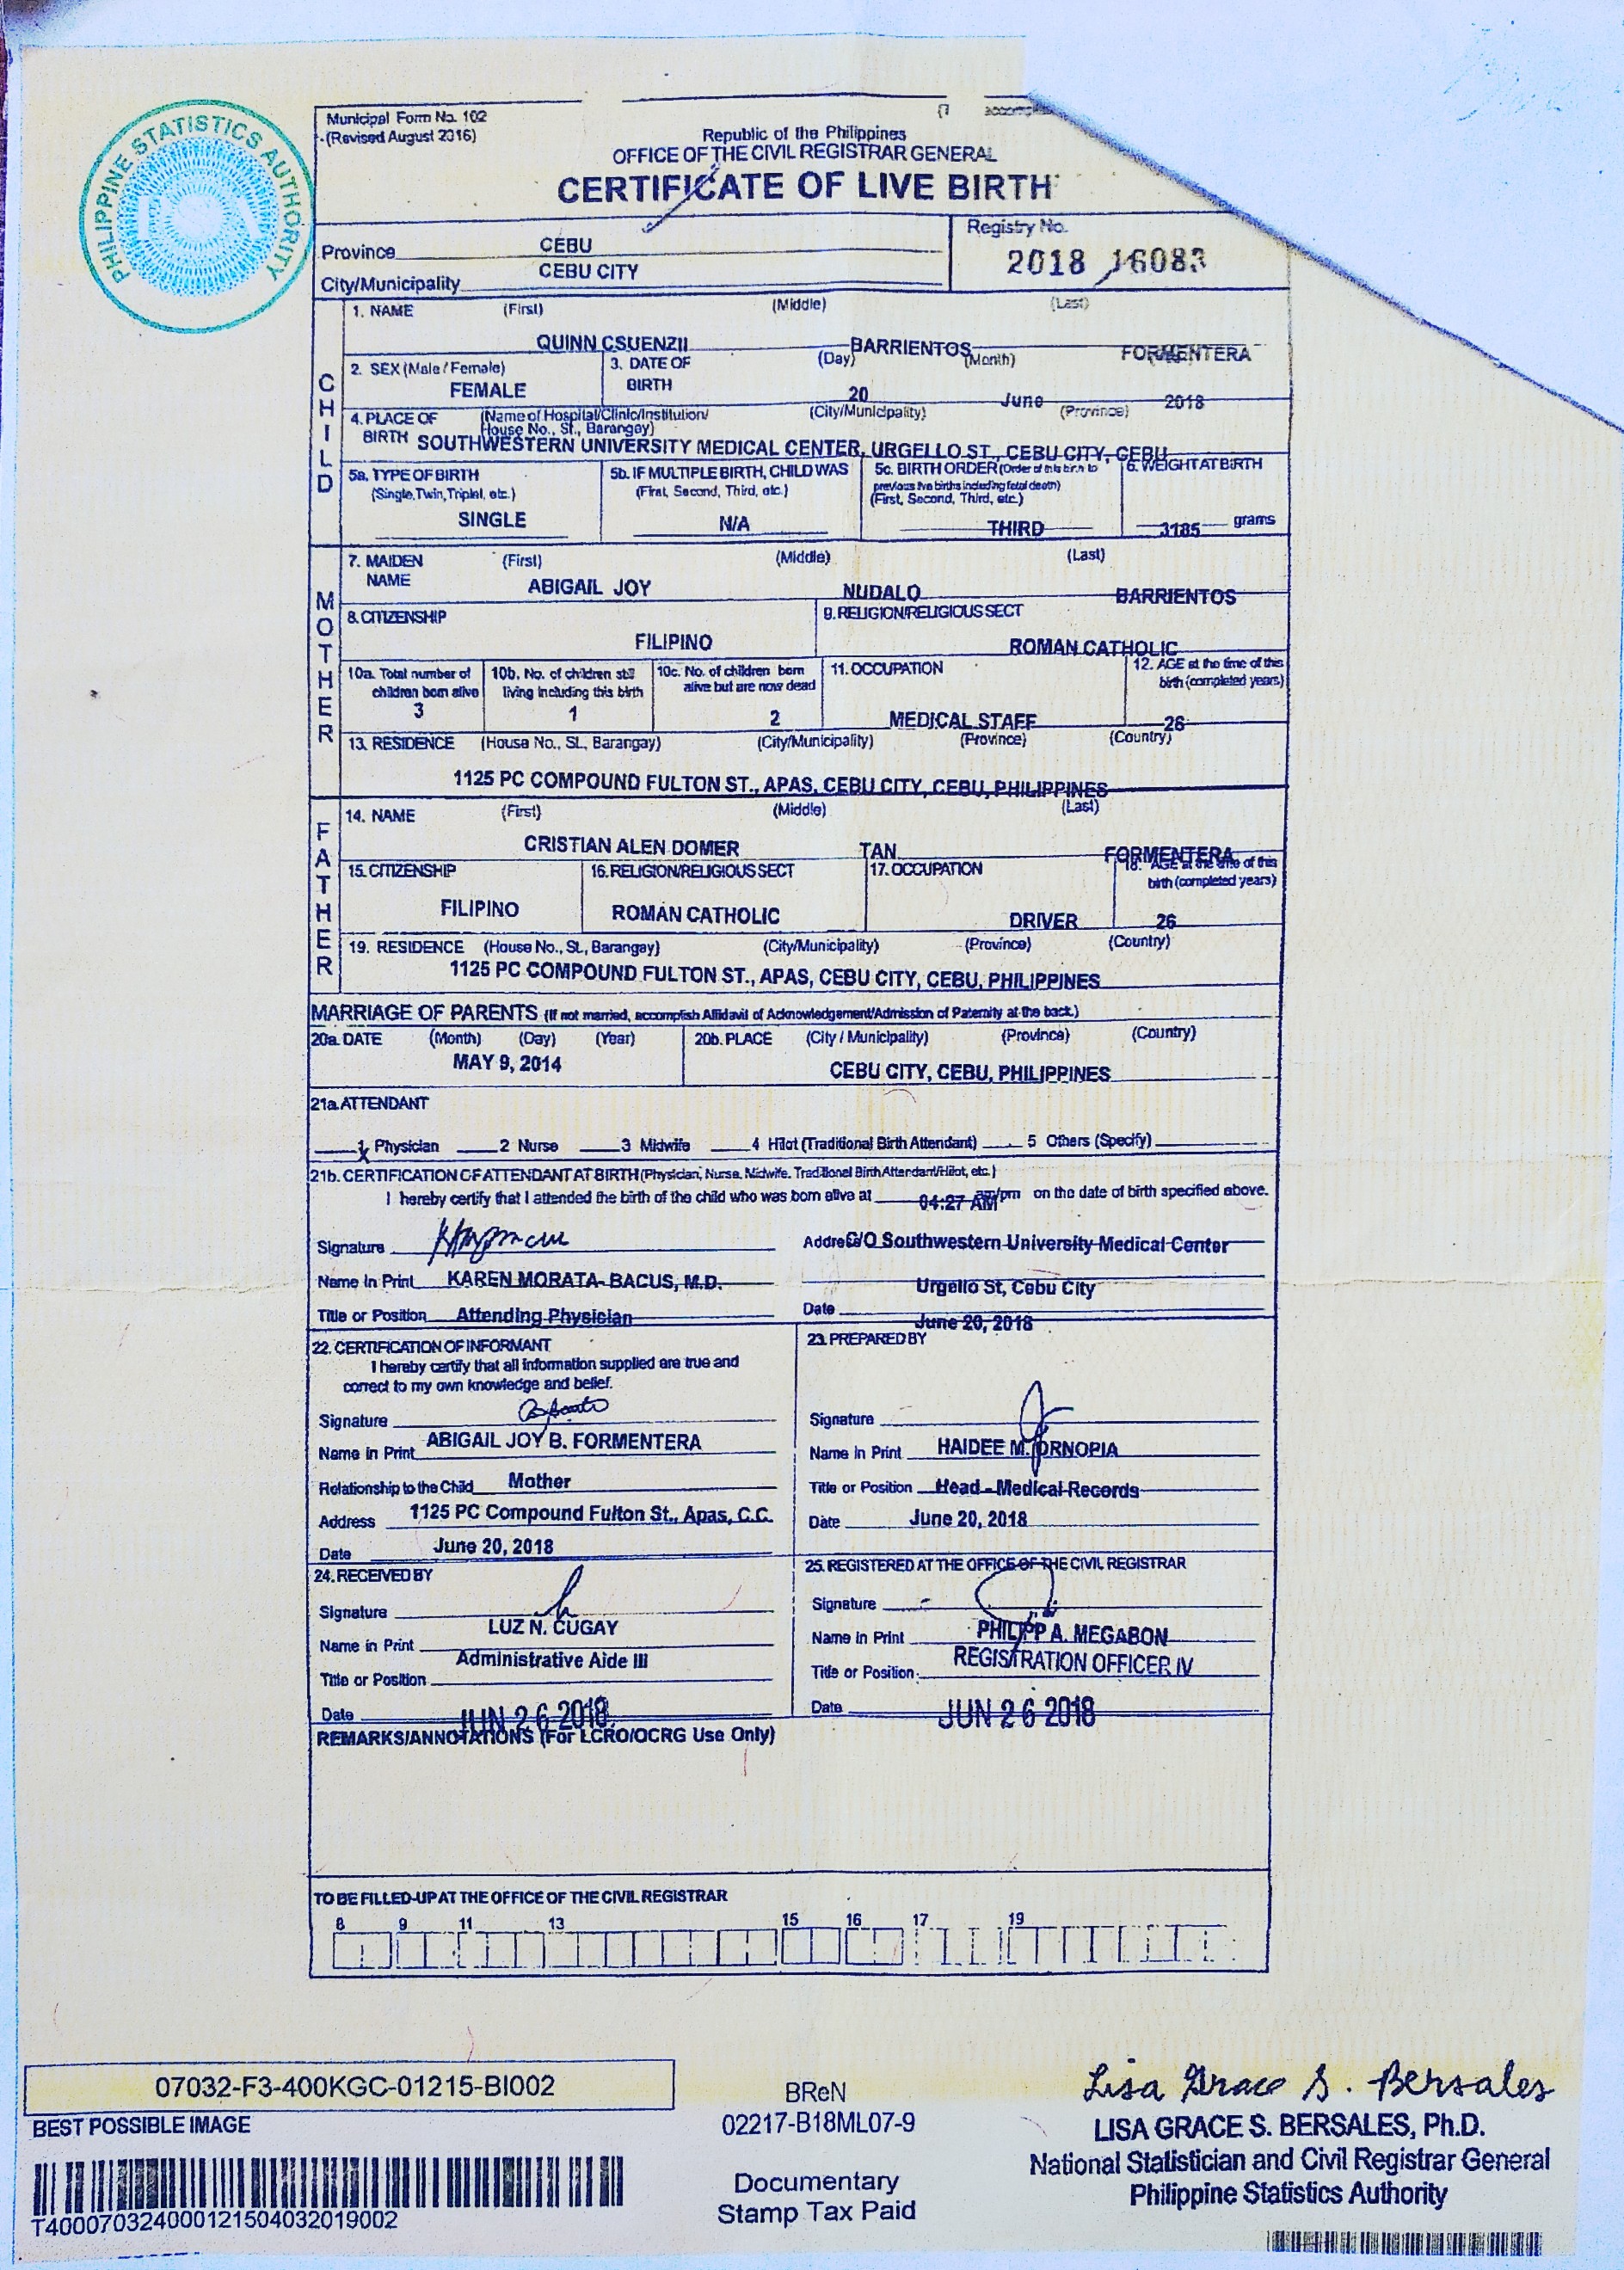 PHILIPPINE STATISTICS AUTHORITY
Municipal Form No. 102
(Revised August 2016)
Republic of the Philippines
OFFICE OF THE CIVIL REGISTRAR GENERAL
CERTIFICATE OF LIVE BIRTH
Province CEBU
City/Municipality CEBU CITY
Registry No.
2018 16083
CHILD
1. NAME (First) (Middle) (Last)
QUINN CSUENZII BARRIENTOS FORMENTERA
2. SEX (Male / Female) 3. DATE OF BIRTH (Day) (Month)
FEMALE 20 June 2018
4. PLACE OF BIRTH (Name of Hospital/Clinic/Institution/ House No., St., Barangay) (City/Municipality) (Province)
SOUTHWESTERN UNIVERSITY MEDICAL CENTER, URGELLO ST., CEBU CITY, CEBU
5a. TYPE OF BIRTH 5b. IF MULTIPLE BIRTH, CHILD WAS 5c. BIRTH ORDER (Order of this birth to previous live births including fetal death) 6. WEIGHT AT BIRTH
(Single, Twin, Triplet, etc.) (First, Second, Third, etc.) (First, Second, Third, etc.)
SINGLE N/A THIRD 3185 grams
MOTHER
7. MAIDEN NAME (First) (Middle) (Last)
ABIGAIL JOY NUDALO BARRIENTOS
8. CITIZENSHIP 9. RELIGION/RELIGIOUS SECT
FILIPINO ROMAN CATHOLIC
10a. Total number of children born alive 10b. No. of children still living including this birth 10c. No. of children born alive but are now dead 11. OCCUPATION 12. AGE at the time of this birth (completed years)
3 1 2 MEDICAL STAFF 26
13. RESIDENCE (House No., St., Barangay) (City/Municipality) (Province) (Country)
1125 PC COMPOUND FULTON ST., APAS, CEBU CITY, CEBU, PHILIPPINES
FATHER
14. NAME (First) (Middle) (Last)
CRISTIAN ALEN DOMER TAN FORMENTERA
15. CITIZENSHIP 16. RELIGION/RELIGIOUS SECT 17. OCCUPATION 18. AGE at the time of this birth (completed years)
FILIPINO ROMAN CATHOLIC DRIVER 26
19. RESIDENCE (House No., St., Barangay) (City/Municipality) (Province) (Country)
1125 PC COMPOUND FULTON ST., APAS, CEBU CITY, CEBU, PHILIPPINES
MARRIAGE OF PARENTS (If not married, accomplish Affidavit of Acknowledgement/Admission of Paternity at the back.)
20a. DATE (Month) (Day) (Year) 20b. PLACE (City / Municipality) (Province) (Country)
MAY 9, 2014 CEBU CITY, CEBU, PHILIPPINES
21a. ATTENDANT
X 1 Physician 2 Nurse 3 Midwife 4 Hilot (Traditional Birth Attendant) 5 Others (Specify)
21b. CERTIFICATION OF ATTENDANT AT BIRTH (Physician, Nurse, Midwife, Traditional Birth Attendant/Hilot, etc.)
I hereby certify that I attended the birth of the child who was born alive at 04:27 AM am/pm on the date of birth specified above.
Signature Address C/O Southwestern University Medical Center
Name in Print KAREN MORATA-BACUS, M.D. Urgello St, Cebu City
Title or Position Attending Physician Date June 20, 2018
22. CERTIFICATION OF INFORMANT
I hereby certify that all information supplied are true and
correct to my own knowledge and belief.
Signature
Name in Print ABIGAIL JOY B. FORMENTERA
Relationship to the Child Mother
Address 1125 PC Compound Fulton St., Apas, C.C.
Date June 20, 2018
23. PREPARED BY
Signature
Name in Print HAIDEE M. ORNOPIA
Title or Position Head - Medical Records
Date June 20, 2018
24. RECEIVED BY
Signature
LUZ N. CUGAY
Name in Print
Administrative Aide III
Title or Position
Date JUN 26 2018
25. REGISTERED AT THE OFFICE OF THE CIVIL REGISTRAR
Signature
Name in Print PHILIPP A. MEGABON
Title or Position REGISTRATION OFFICER IV
Date JUN 26 2018
REMARKS/ANNOTATIONS (For LCRO/OCRG Use Only)
TO BE FILLED-UP AT THE OFFICE OF THE CIVIL REGISTRAR
8 9 11 13 15 16 17 19
07032-F3-400KGC-01215-BI002
BEST POSSIBLE IMAGE
T400070324000121504032019002
BReN
02217-B18ML07-9
Documentary
Stamp Tax Paid
Lisa Grace S. Bersales
LISA GRACE S. BERSALES, Ph.D.
National Statistician and Civil Registrar General
Philippine Statistics Authority